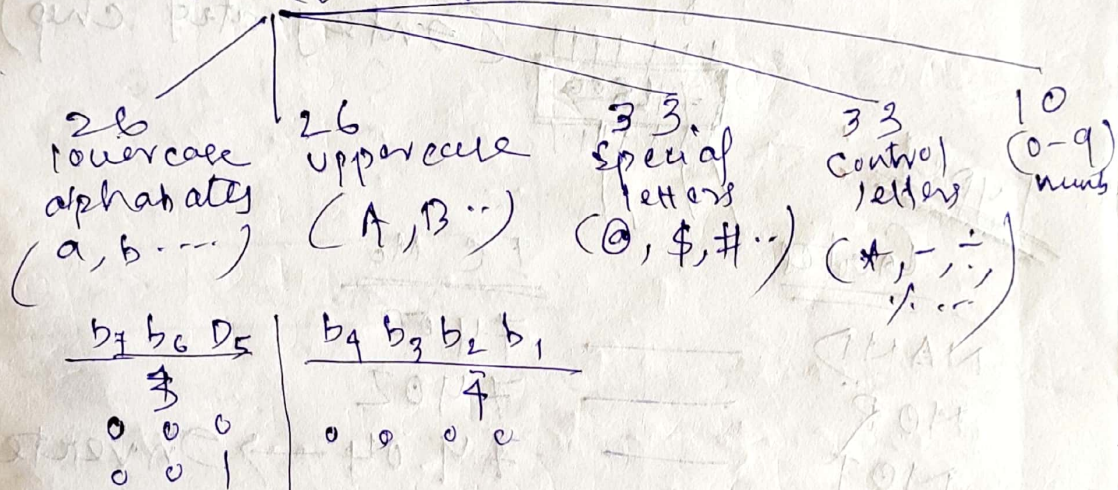 26
lowercase
alphabates
(a, b ....)
26
uppercase
(A, B ..)
33
special
letters
(@, $, # ..)
33
control
letters
(*, -, ÷,
% ...)
10
(0-9)
numb
b7 b6 b5 | b4 b3 b2 b1
3 | 4
0 0 0 | 0 0 0 0
0 0 1